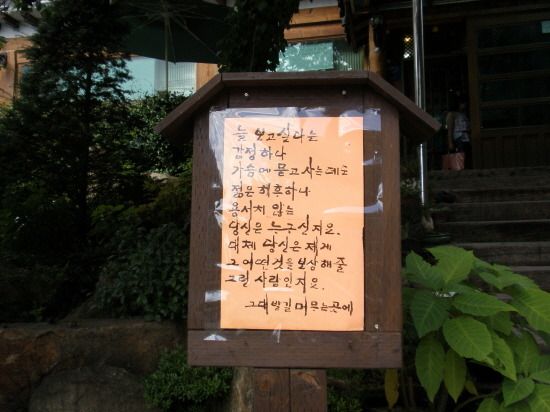 늘 보고싶다는
감정하나
가슴에 묻고 사는 제게
젊은 해후하나
용서치 않는
당신은 누구신지요.
대체 당신은 제게
그 어떤것을 보상해 줄
그럴 사람인지요.
그대 발길 머무는곳에